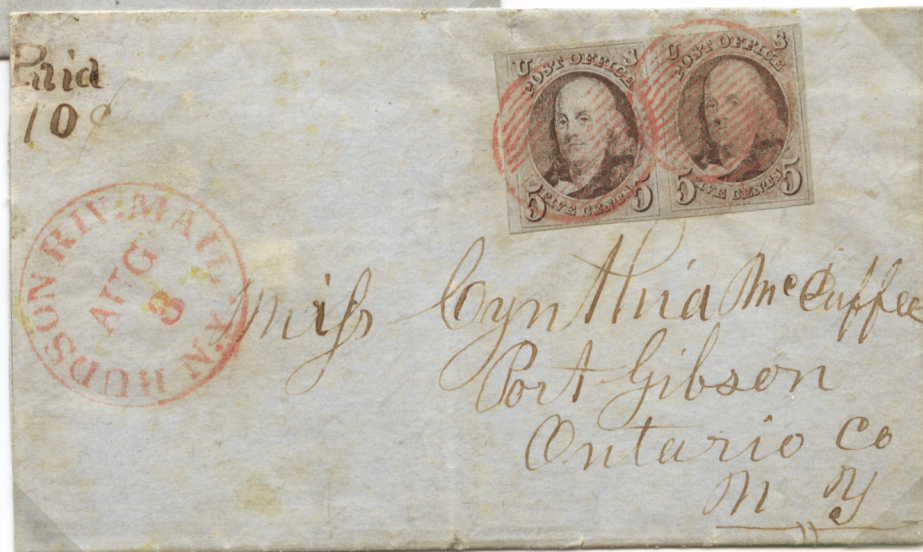 Paid
10¢
U S
POST OFFICE
5 FIVE CENTS 5
U S
POST OFFICE
5 FIVE CENTS 5
HUDSON RIV. MAIL N.Y.
AUG
3
Miss Cynthia McCuffee
Port Gibson
Ontario Co
N Y